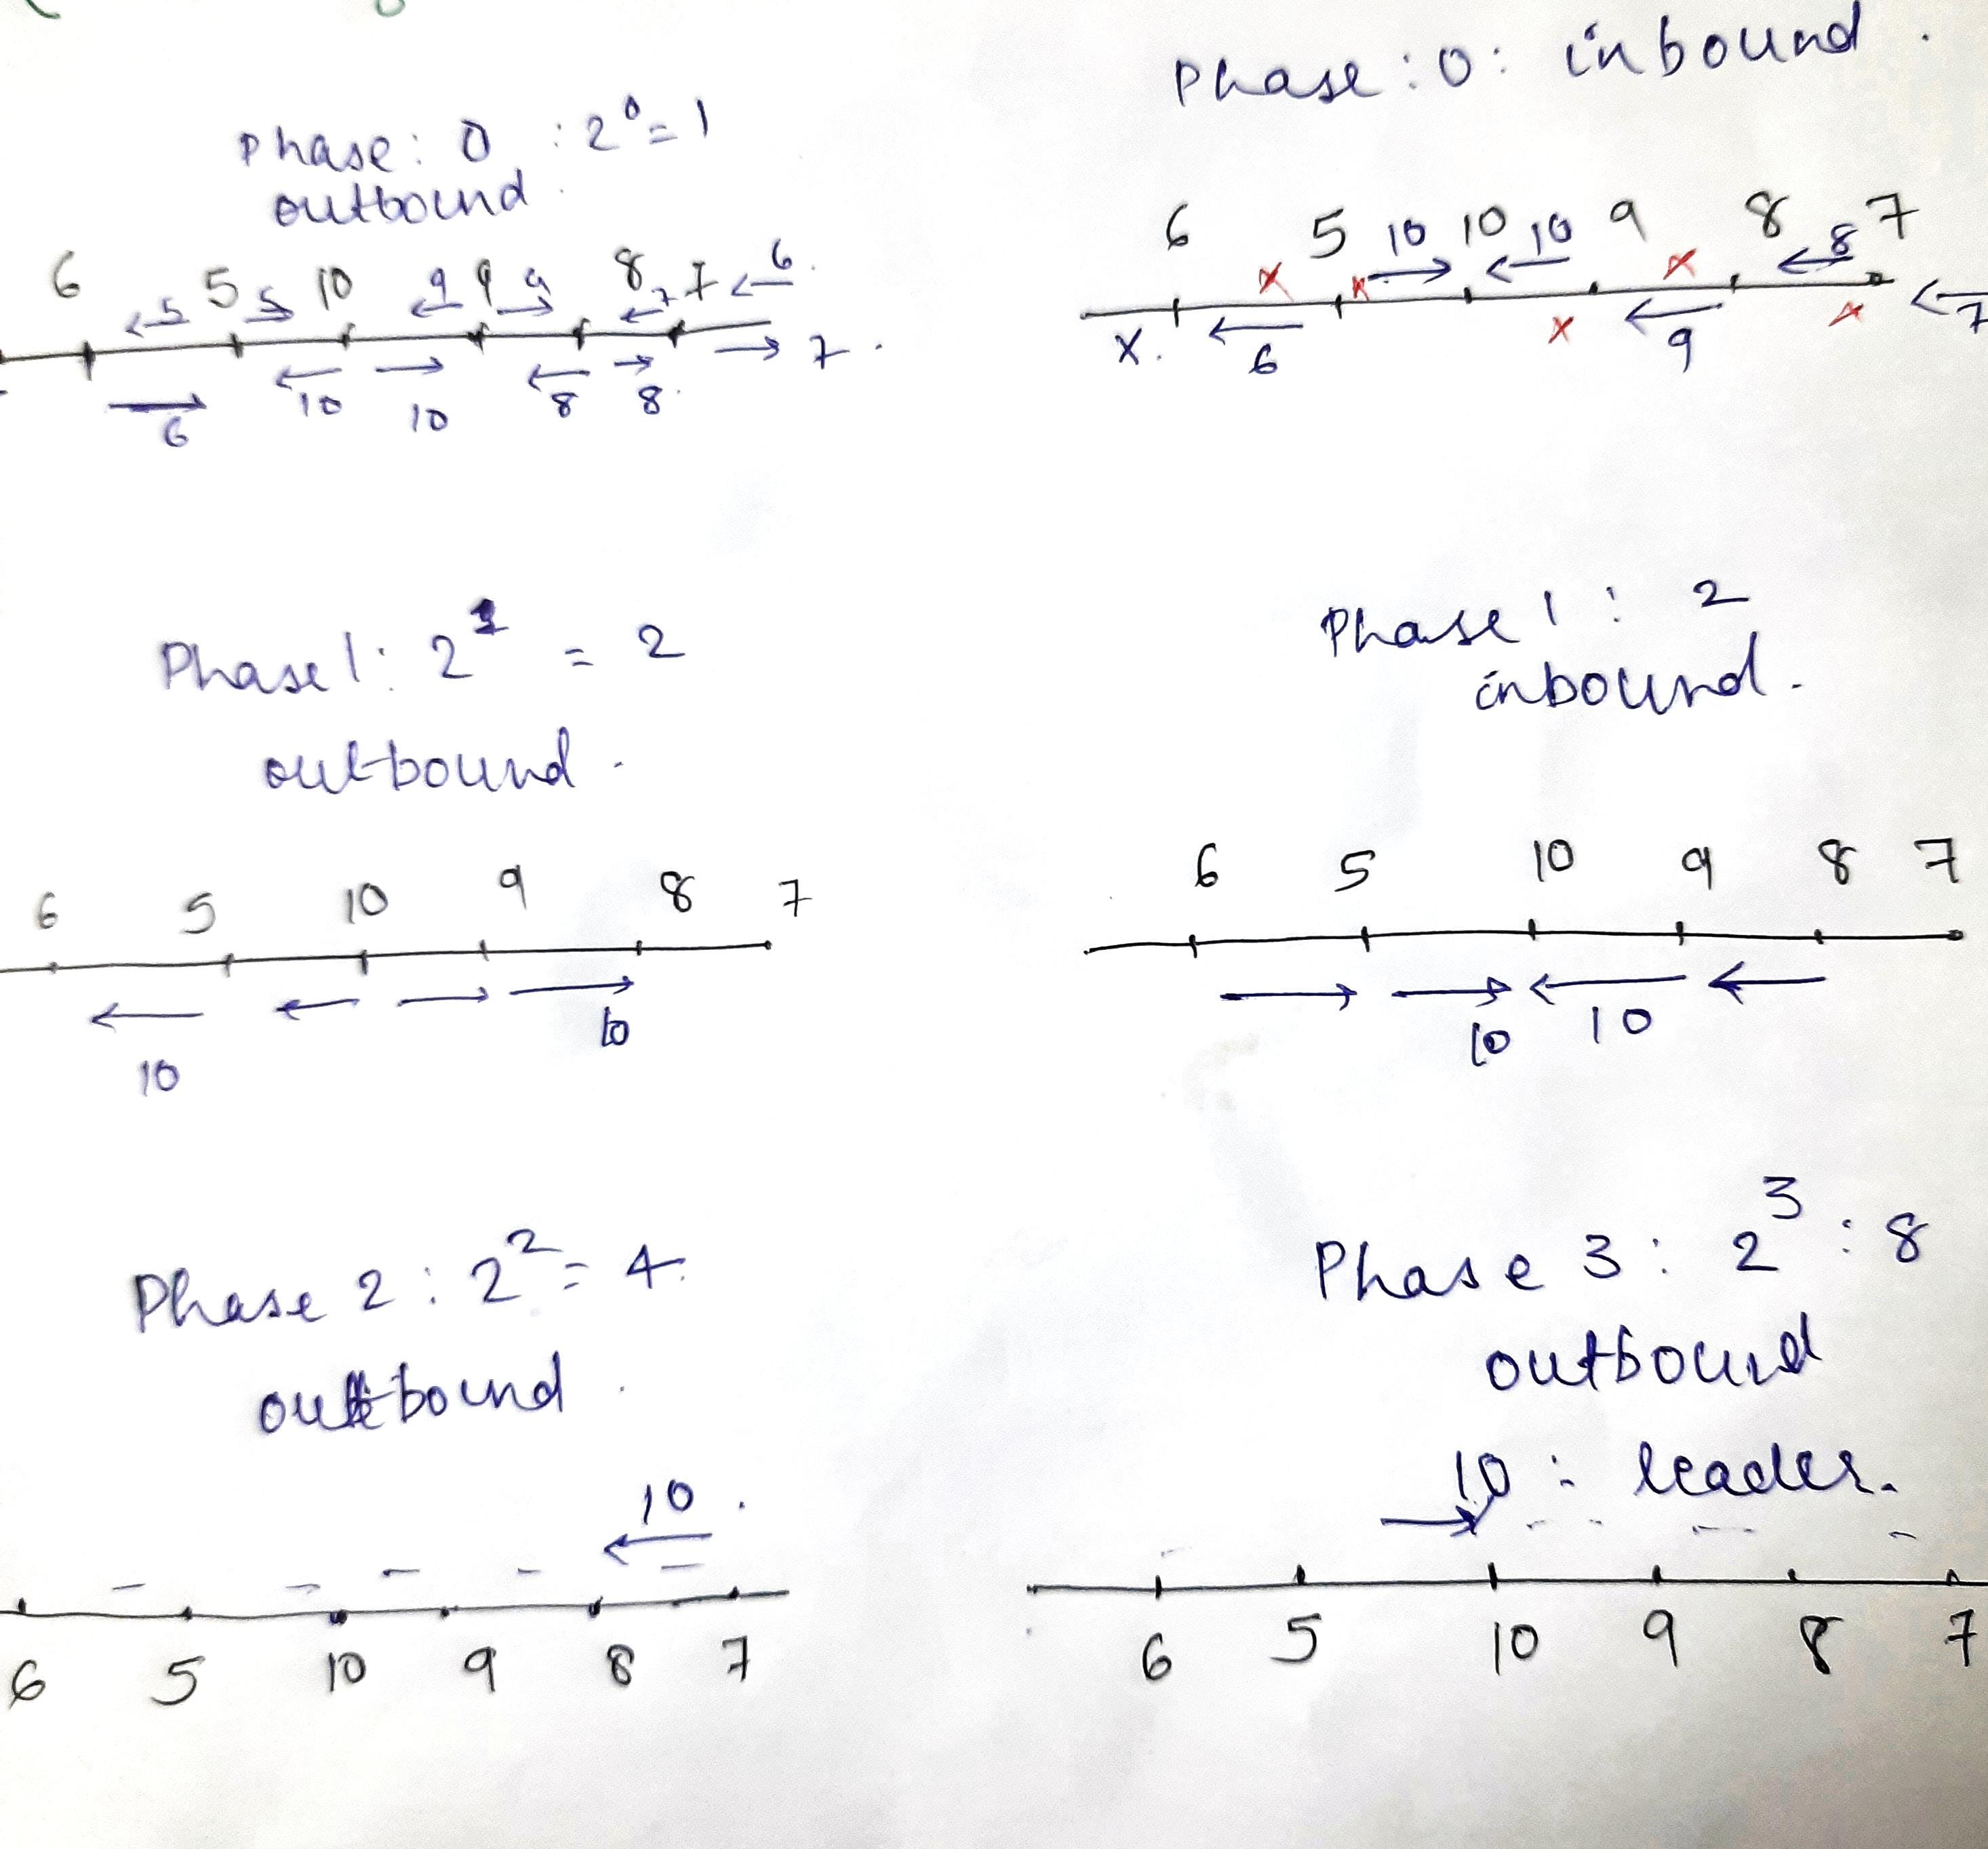 Phase : 0 : inbound .
Phase : 0 : 2⁰ = 1
outbound .
6 5 10 10 10 9 8 8 7
x x x
6 5 5 5 10 9 9 9 8 7 7 6 .
x . 6 x 9 x 7
6 10 10 8 8 . 7 .
Phase 1 : 2¹ = 2
outbound .
Phase 1 : 2
inbound .
6 5 10 9 8 7
10 10
6 5 10 9 8 7
10 10
Phase 2 : 2² = 4 .
outbound .
10 .
6 5 10 9 8 7
Phase 3 : 2³ : 8
outbound
10 : leader .
6 5 10 9 8 7